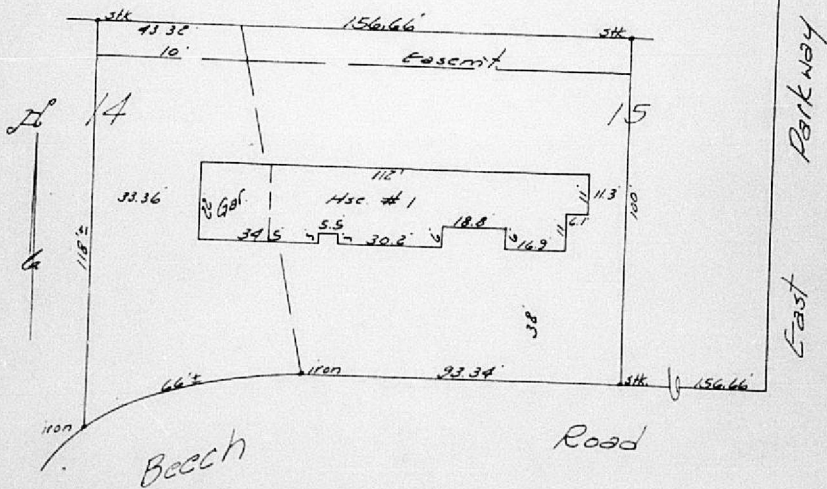 stk
43.32
156.66'
stk
10'
Easem't
14
15
Parkway
112'
33.36
22
Gar.
Hse. # 1
11
11.3'
100'
118'±
34.5
3
5.5
3
30.2'
6
18.8'
6
16.9'
11
6.1'
38'
East
66'±
iron
93.34'
stk.
156.66'
iron
Beech
Road